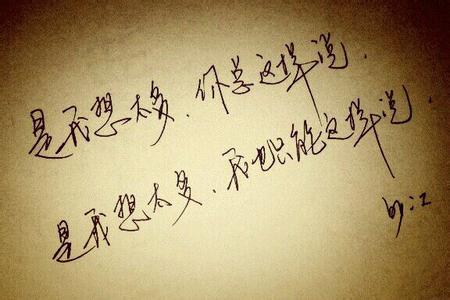 是我想太多、你总这样说.
是我想太多、我也只能这样说.